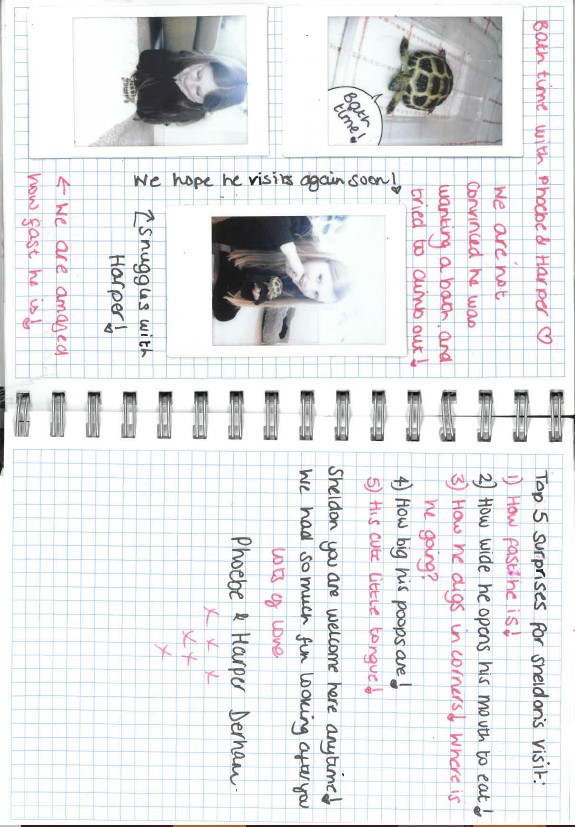 Bath time with Phoebe & Harper ♡
Bath
time!
We are not
convinced he was
wanting a bath, and
tried to climb out!
We hope he visits again soon!
↖ Snuggles with
Harper!
← We are amazed
how fast he is!
Top 5 surprises for Sheldon's visit:
1) How fast he is!
2) How wide he opens his mouth to eat!
3) How he digs in corners! Where is
he going?
4) How big his poops are!
5) His cute little tongue!
Sheldon you are welcome here anytime!
We had so much fun looking after you
Lots of love
Phoebe & Harper Derham.
x x x
x x
x